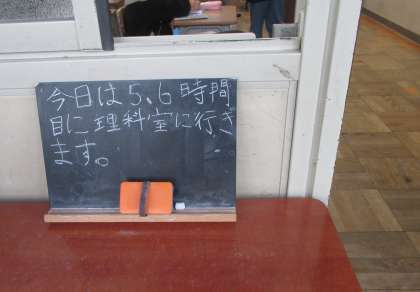 今日は5、6時間
目に理科室に行き
ます。